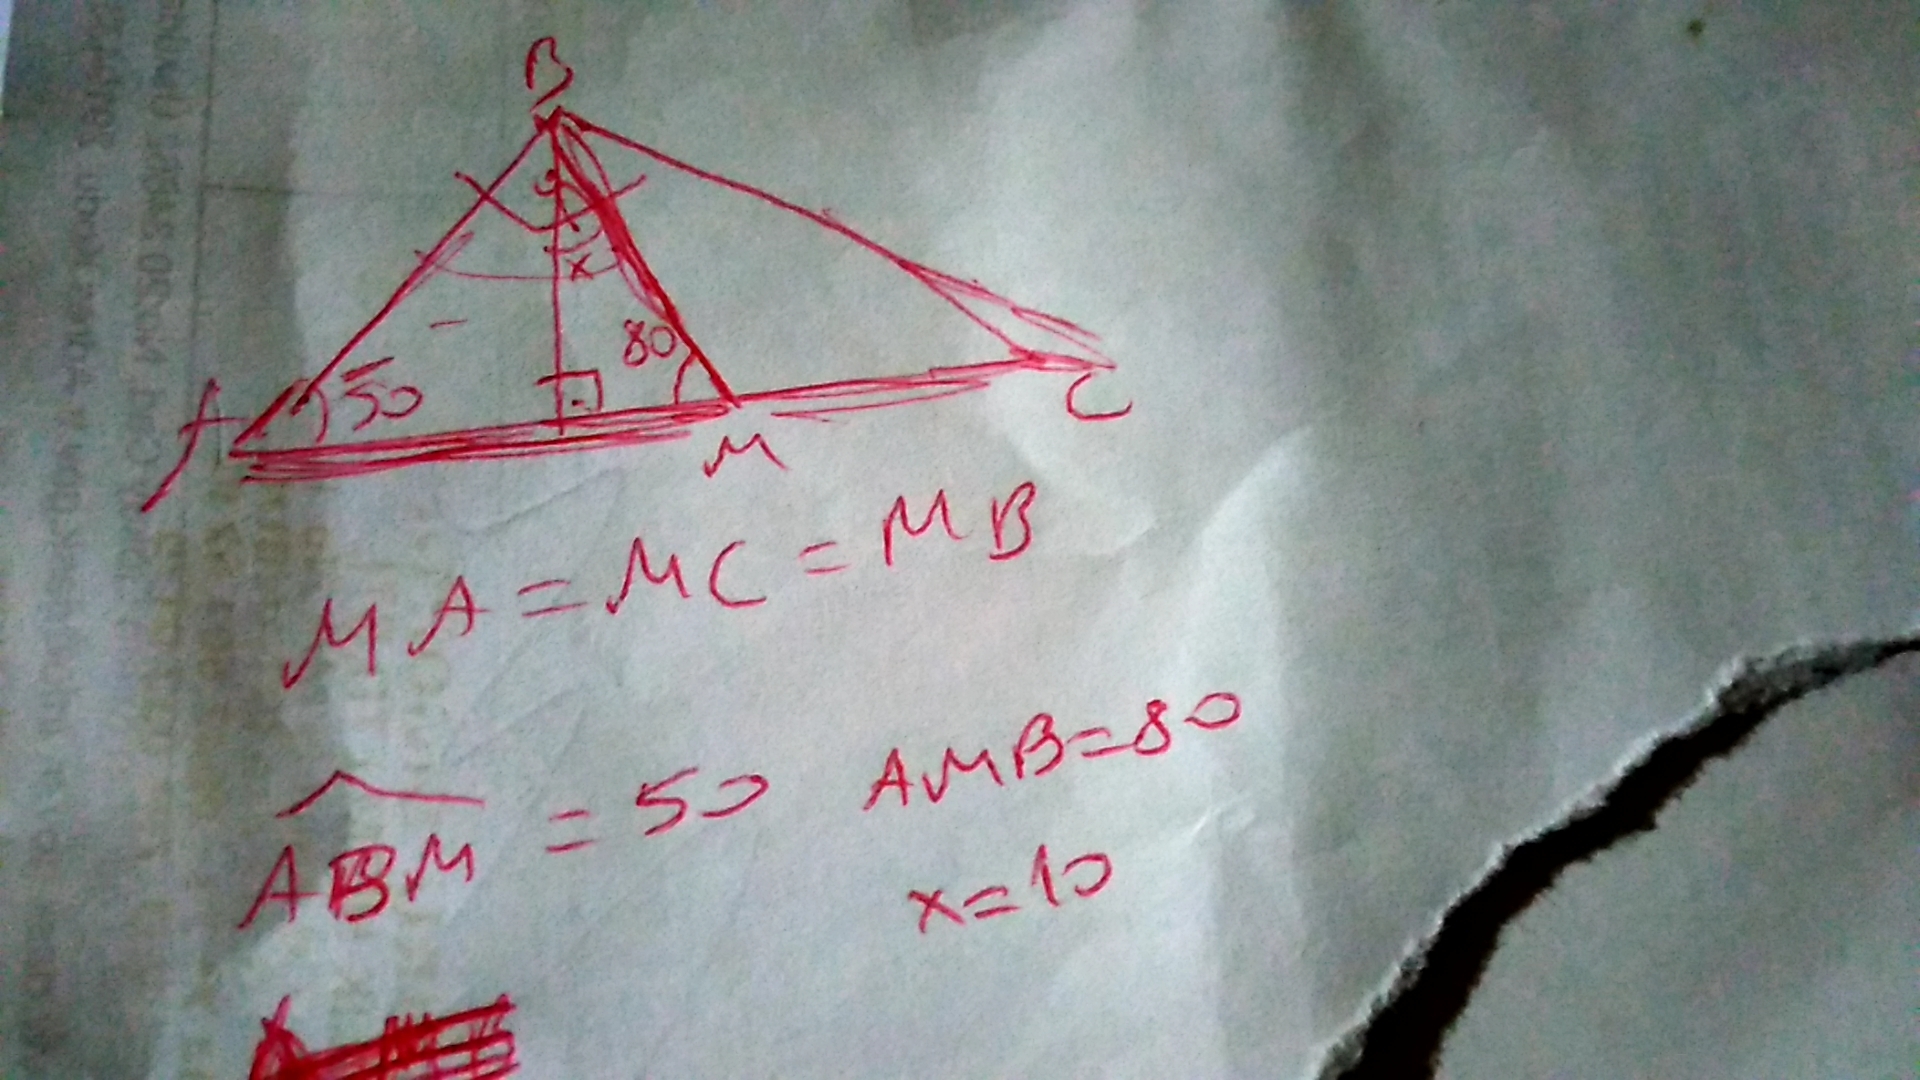 B
x
80
50
A
C
M
MA = MC = MB
ABM = 50 AMB=80
x=10